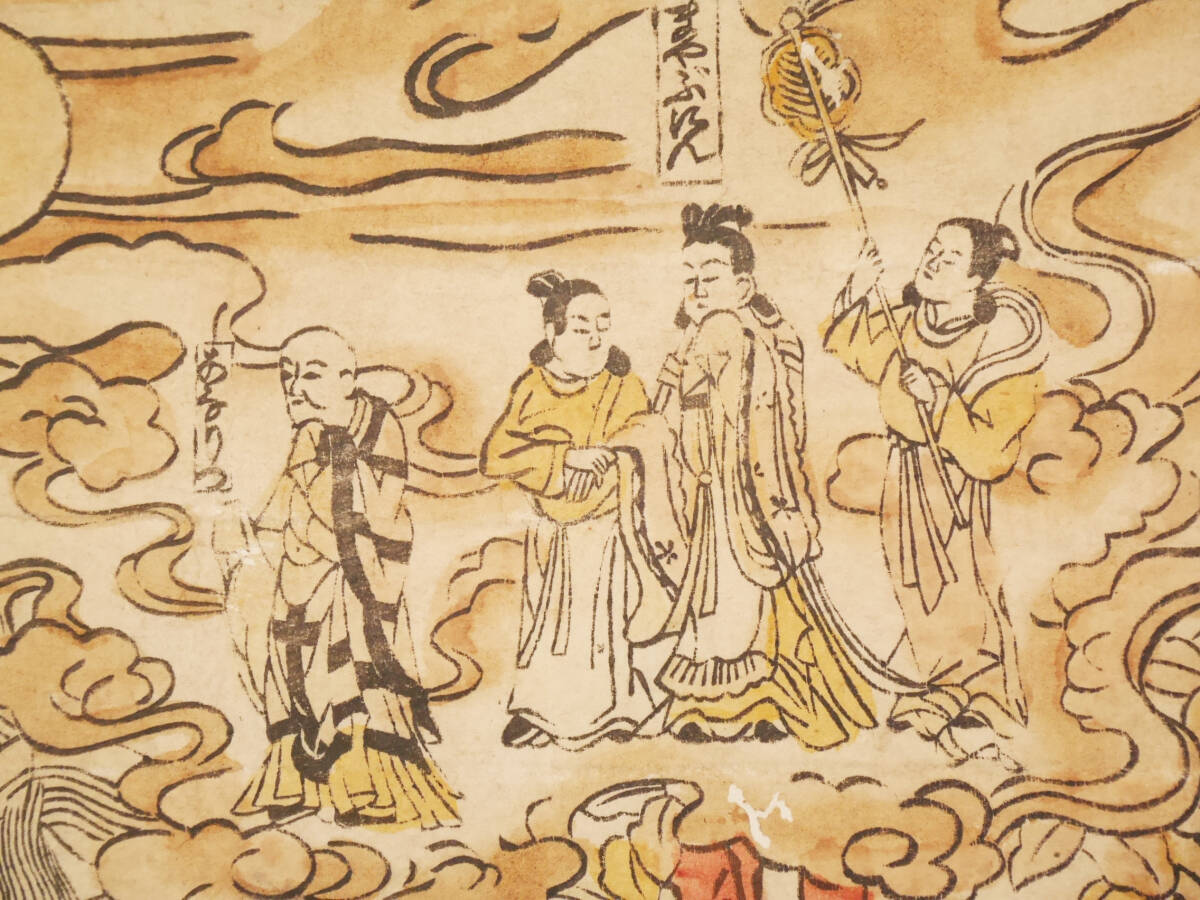 まやぶにん
あなりつ